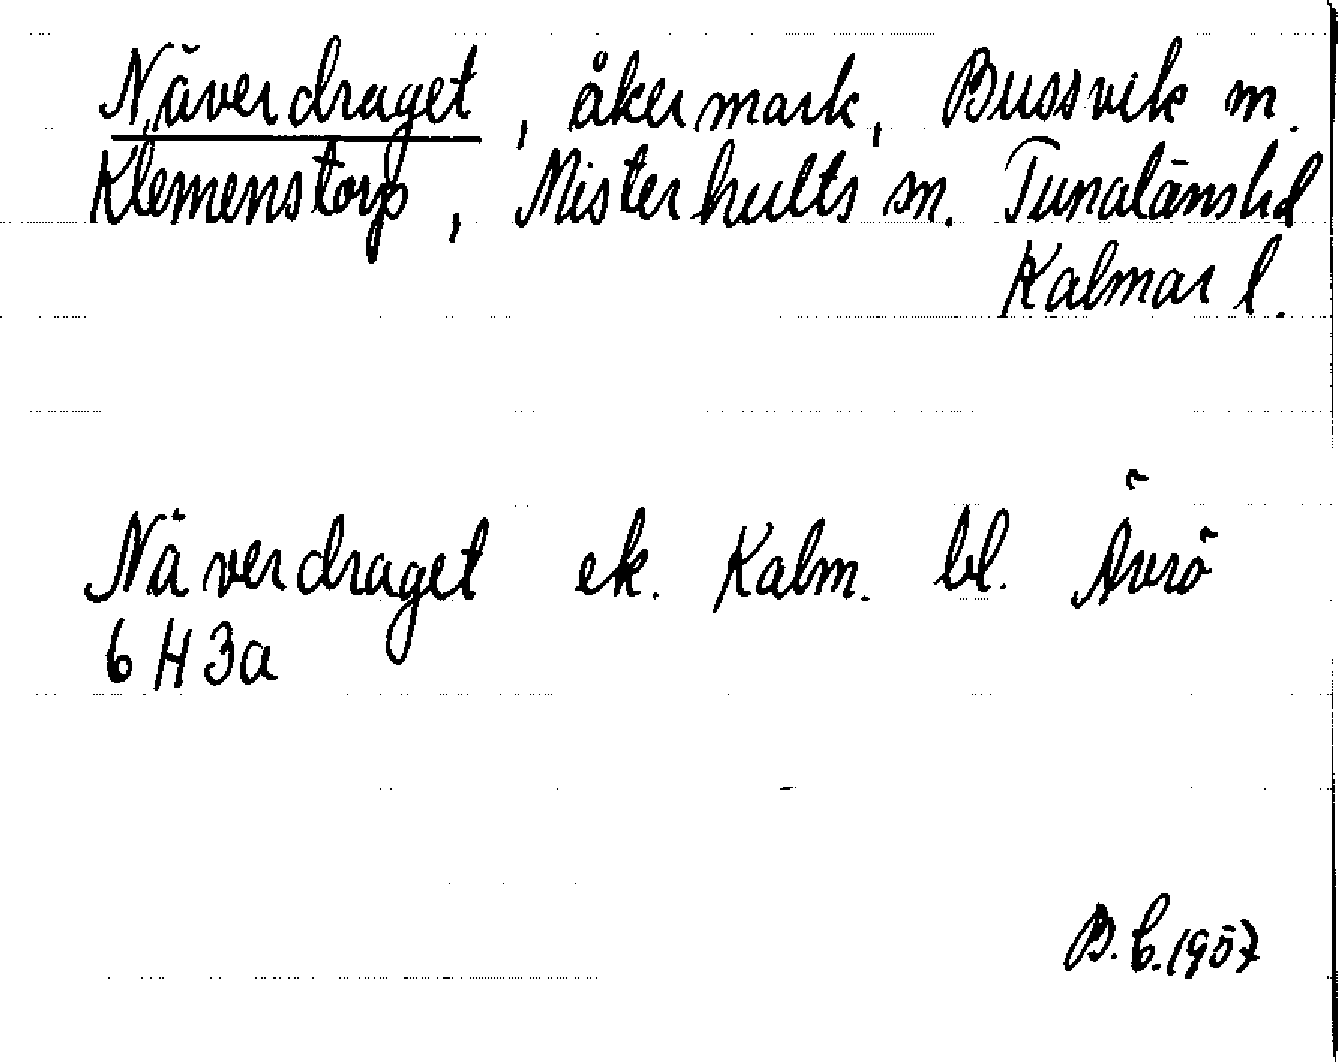 Näverdraget, åkermark, Bussvik m.
Klemenstorp, Misterhults sn. Tunalänshd
Kalmar l.
Näverdraget ek. Kalm. bl. Ävrö
6H3a
B.C.1957